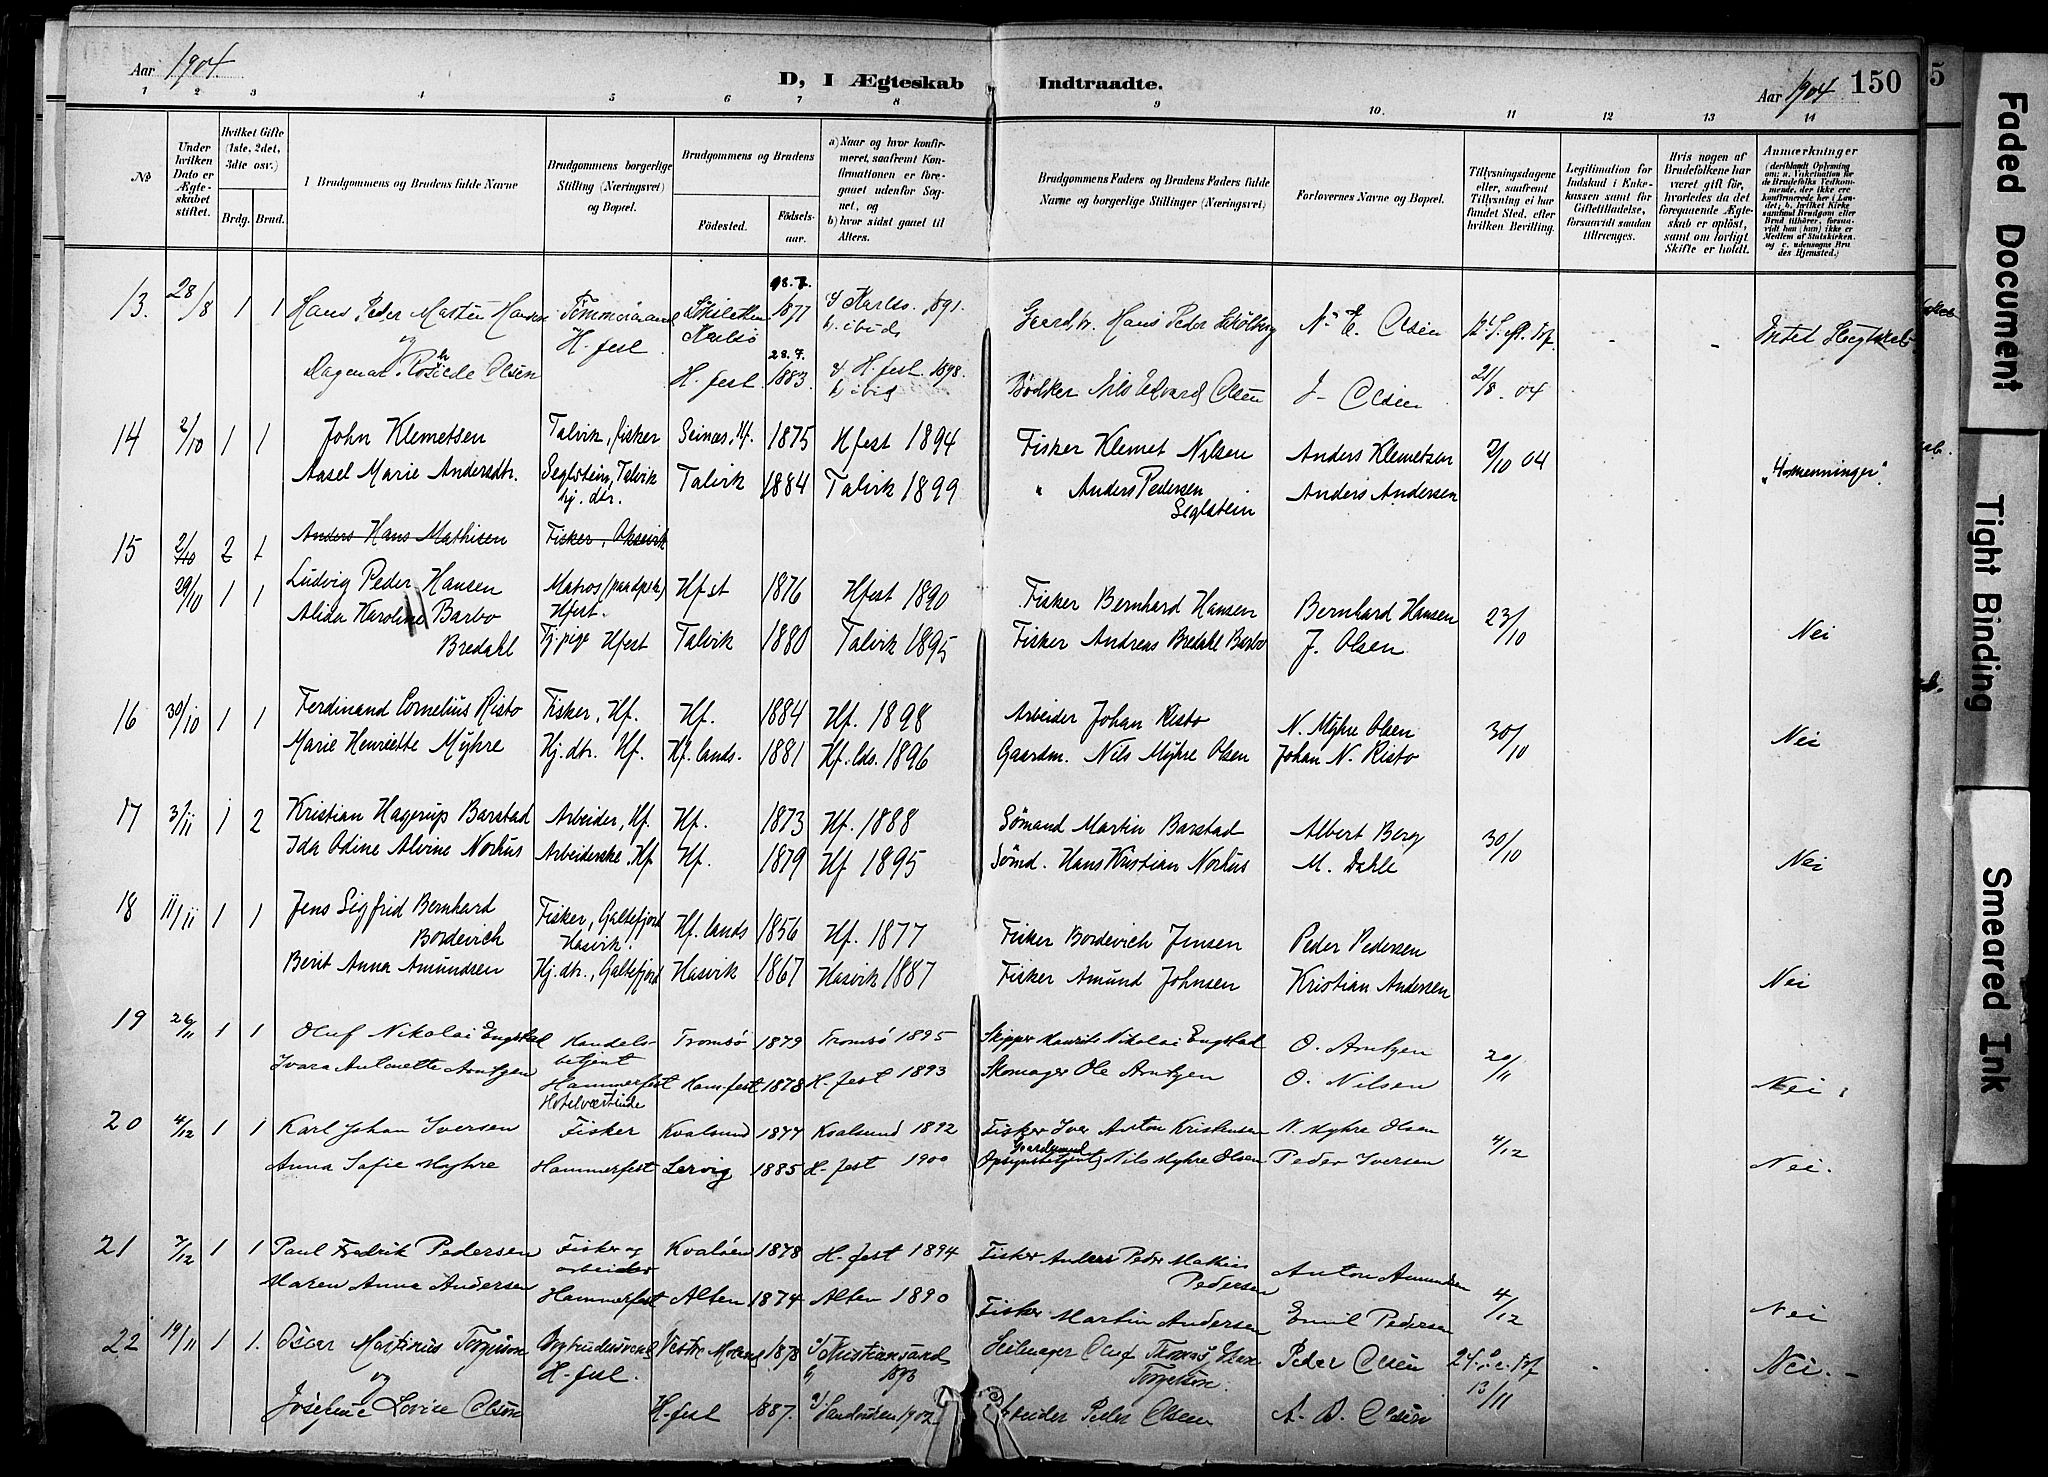 Aar 1904.
D, I Ægteskab Indtraadte.
Aar 1904 150
5
1 2 3 4 5 6 7 8 9 10. 11 12 13 14
No
Under hvilken Dato er Ægteskabet stiftet.
Hvilket Gifte (1ste, 2det, 3die osv.)
Brdg. Brud.
I Brudgommens og Brudens fulde Navne
Brudgommens borgerlige Stilling (Næringsvei) og Bopæl.
Brudgommens og Brudens
Fødested. Fødselsaar.
a) Naar og hvor konfirmeret, saafremt Konfirmationen er foregaaet udenfor Sognet, og
b) hvor sidst gaaet til Alters.
Brudgommens Faders og Brudens Faders fulde Navne og borgerlige Stillinger (Næringsvei)
Forlovernes Navne og Bopæl.
Tillysningsdagene eller, saafremt Tillysning ei har fundet Sted, efter hvilken Bevilling.
Legitimation for Indskud i Enkekassen samt for Giftetilladelse, forsaavidt saadan tiltrænges.
Hvis nogen af Brudefolkene har været gift før, hvorledes da det foregaaende Ægteskab er opløst, samt om lovligt Skifte er holdt.
Anmærkninger
13. 28/8 1 1 Hans Peder Martin Hansen H. fest. Karlsø 1877 Karls. 1891. Hans Peder N. E. Olsen
og
Dagmar Olsen H. fest 28.7. 1883. H. fest 1898. b. ibid Bødker Nils Edvard Olsen J. Olsen 21/8 04
14 2/10 1 1 John Klemetsen Talvik, fisker 1875 Hfest 1894 Fisker Klemet Nilsen Anders Klemetsen 2/10 04 "4-menninger".
Aasel Marie Andersdtr. Seglstein, Talvik hj. dtr. Talvik 1884 Talvik 1899 " Anders Pedersen Seglstein Anders Andersen
15 2/10 2 1 Anders Hans Mathisen Fisker, Oksvik
29/10 1 1 Ludvig Peder Hansen Matros Hfest. Hfst 1876 Hfest 1890 Fisker Bernhard Hansen Bernhard Hansen 23/10
Alida Karoline Barbo Bredahl Tj.pige Hfest Talvik 1880 Talvik 1895 Fisker Andreas Bredahl Barbo J. Olsen Nei
16 30/10 1 1 Ferdinand Cornelius Risto Fisker, Hf. Hf. 1884 Hf. 1898 Arbeider Johan Risto N. Myhre Olsen 30/10
Marie Henriette Myhre Hj. dtr. Hf. Hf. lands. 1881 Hf. lds. 1896 Gaardm. Nils Myhre Olsen Johan N. Risto Nei
17 3/11 1 2 Kristian Hagerup Barstad Arbeider, Hf. Hf. 1873 Hf. 1888 Sømand Martin Barstad Albert Berg 30/10
Ida Odine Alvine Norhus Arbeiderske, Hf Hf. 1879 Hf 1895 Sømd. Hans Kristian Norhus M. Dahle Nei
18 11/11 1 1 Jens Sigfrid Bernhard Bordevich Fisker, Galtefjord Hasvik. Hf. lands 1856 Hf. 1877 Fisker Bordevich Jensen Peder Pedersen
Berit Anna Amundsen Hj. dtr., Galtefjord Hasvik 1867 Hasvik 1887 Fisker Amund Johnsen Kristian Andersen Nei
19 26/11 1 1 Oluf Nikolai Engstad Handelsbetjent Tromsø 1879 Tromsø 1895 Skipper Maurits Nikolai Engstad O. Arntzen 20/11
Ivara Antonette Arntzen Hammerfest Hotelværtinde Hamfest 1878 H. fest 1893 Skomager Ole Arntzen O. Nilsen Nei
20 4/12 1 1 Karl Johan Iversen Fisker Kvalsund 1877 Kvalsund 1892 Fisker Iver Anton Kristensen N. Myhre Olsen 4/12
Anna Sofie Myhre Hammerfest Lervig 1885 H. fest 1900 Gaardmand Nils Myhre Olsen Peder Iversen Nei.
21 7/12 1 1 Paul Fredrik Pedersen Fisker og arbeider Kvaløen 1878 H. fest 1894 Fisker Anders Peder Mathias Pedersen Anton Amundsen
Maren Anna Andersen Hammerfest Alten 1874 Alten 1890 Fisker Martin Andersen Emil Pedersen 4/12 Nei
22 19/11 1 1. Oscar Martinus Torgersen H. fest. 1878 Kristiansand 1893 Oluf Thomas Torgersen. Peder Olsen 13/11 Nei.
og
Josefine Lovise Olsen H. fest 1887. 1902. Peder Olsen A. B. Olsen
Faded Document
Tight Binding
Smeared Ink